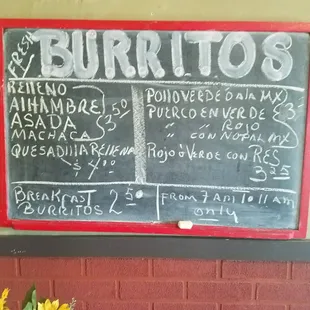 FRESH BURRITOS
RELLENO
AlHAMBRE
ASADA
MACHACA
3 50
QUESADIllA RELLENA
$ 4.00
POllO VERDE Ó a la MX)
PUERCO EN VERDE
" " ROJO
" CON NOPAL MX
ROJO Ó VERDE CON RES
3 25
BREAKFAST
BURRITOS 2 50
FROM 7 AM TO 11 AM
only